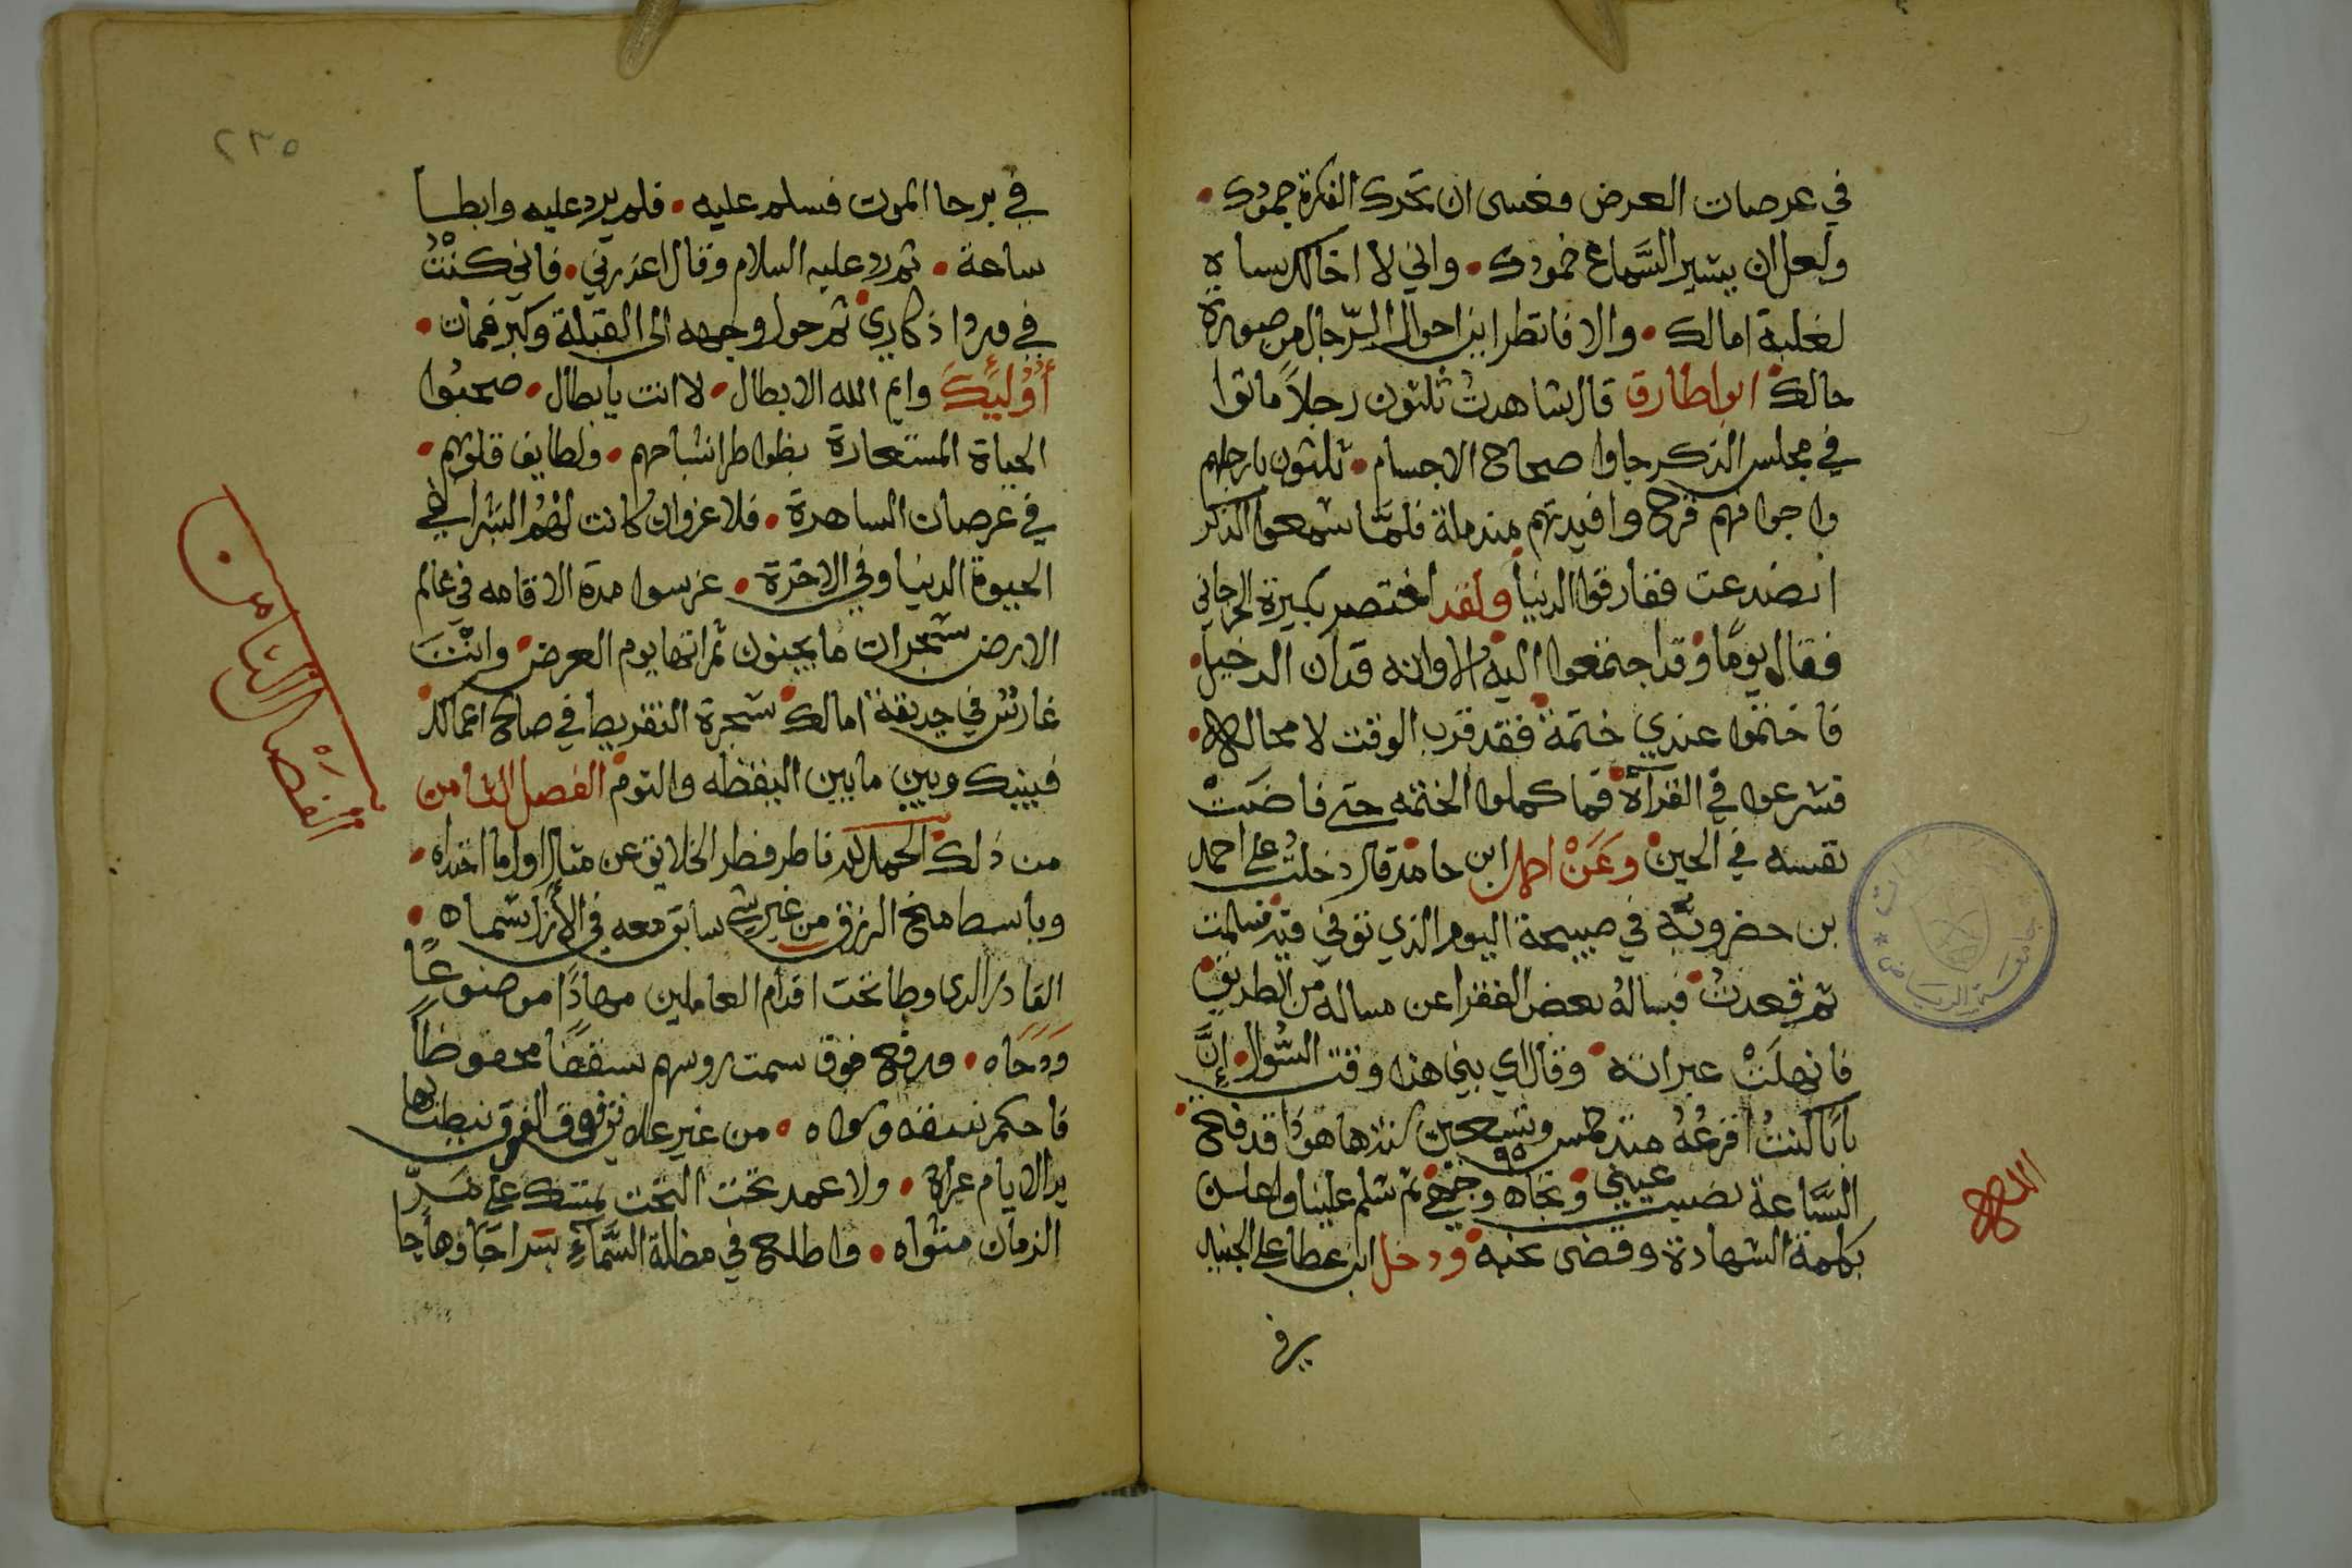 في عرصات العرض فعسى ان تحرك الفكرة جمودك •
ولعل ان يشير السَّماع خمودك • واني لا اخالك بساه
لغلبة امالك • والا فانظر اين احوال الرّجال من صورة
حالك ابوا طارق قال شاهدتُ ثلثون رجلاً ماتوا
في مجلس الذكر جاوا صحاح الاجسام • ثلثون بارجلهم
واجوافهم قرح وافيدتهم مندملة فلمَّا سمعوا الذكر
انصدعت ففارقوا الدنيا ولقد اختصر بكيرة الحرجاني
فقال يومًا وقد اجتمعوا اليه الا وانه قد ان الدخيل •
فاختموا عندي ختمة فقد قرب الوقت لا محاله •
فشرعوا في القرآة فما كملوا الختمه حتى فاضت
نفسه في الحين وعَنْ احمد ابن حامد قال دخلتُ على احمد
بن حضرويه في صبيحة اليوم الذي توفي فيه فسلمت
ثم قعدتُ فسالهُ بعض الفقرا عن مساله من الطريق
فانهلَتْ عبراته وقال اي بني هذا وقت السُّوال • إنَّ
بابًا كنتُ اقرعُهُ منذ خمس وتسعين سنة ها هو ذا قد فتح
٩٥
السَّاعة نصيب عيني وتجاه وجهي ثم سلم علينا واعلن
بكلمة الشهادة وقضى نحبه ودخل ابن عطا على الجنيد
الله
في برحا الموت فسلم عليه • فلم يرد عليه وابطا
ساعة • ثم رد عليه السلام وقال اعذرني • فاني كنْتُ
في ورد اذكاري ثم حول وجهه الى القبلة وكبر فمات •
أُوْليِكَ وايم الله الابطال • لا انت يا بطال • صحبُوا
الحياة المستعارة بظواطر اشباحهم • ولطايف قلوبهم •
في عرصات الساهرة • فلا غروان كانت لهُم البشرا في
الحيوة الدنيا وفي الاخرة • غرسوا مدة الاقامه في عالم
الارض شجرات ما يجنون ثمراتها يوم العرض وانْتَ
غارسٌ في حديقة امالك شجرة التفريط في صالح اعمالك
فبينك وبين ما بين اليقظه والنوم الفصل الثامن
من ذلك الحمد لله فاطر فطر الخلايق عن مثال اول ما احتداه •
وباسط منح الرزق من غير شي سابق معه في الأزل سماه •
القادر الدى وطا تحت اقدام العاملين مهادًا موضوعًا
ودحاه • ورفع فوق سمت روسهم سقفًا محفوظاً
فاحكم نسفه وسواه • من غير علاه
ير الايام عراه • ولا عمد تحت التحت يمتسك على مَرّ
الزمان مثواه • واطلع في مظلة السَّماءِ سراجًا وهاجا
الفصل الثامن
٢٣٥